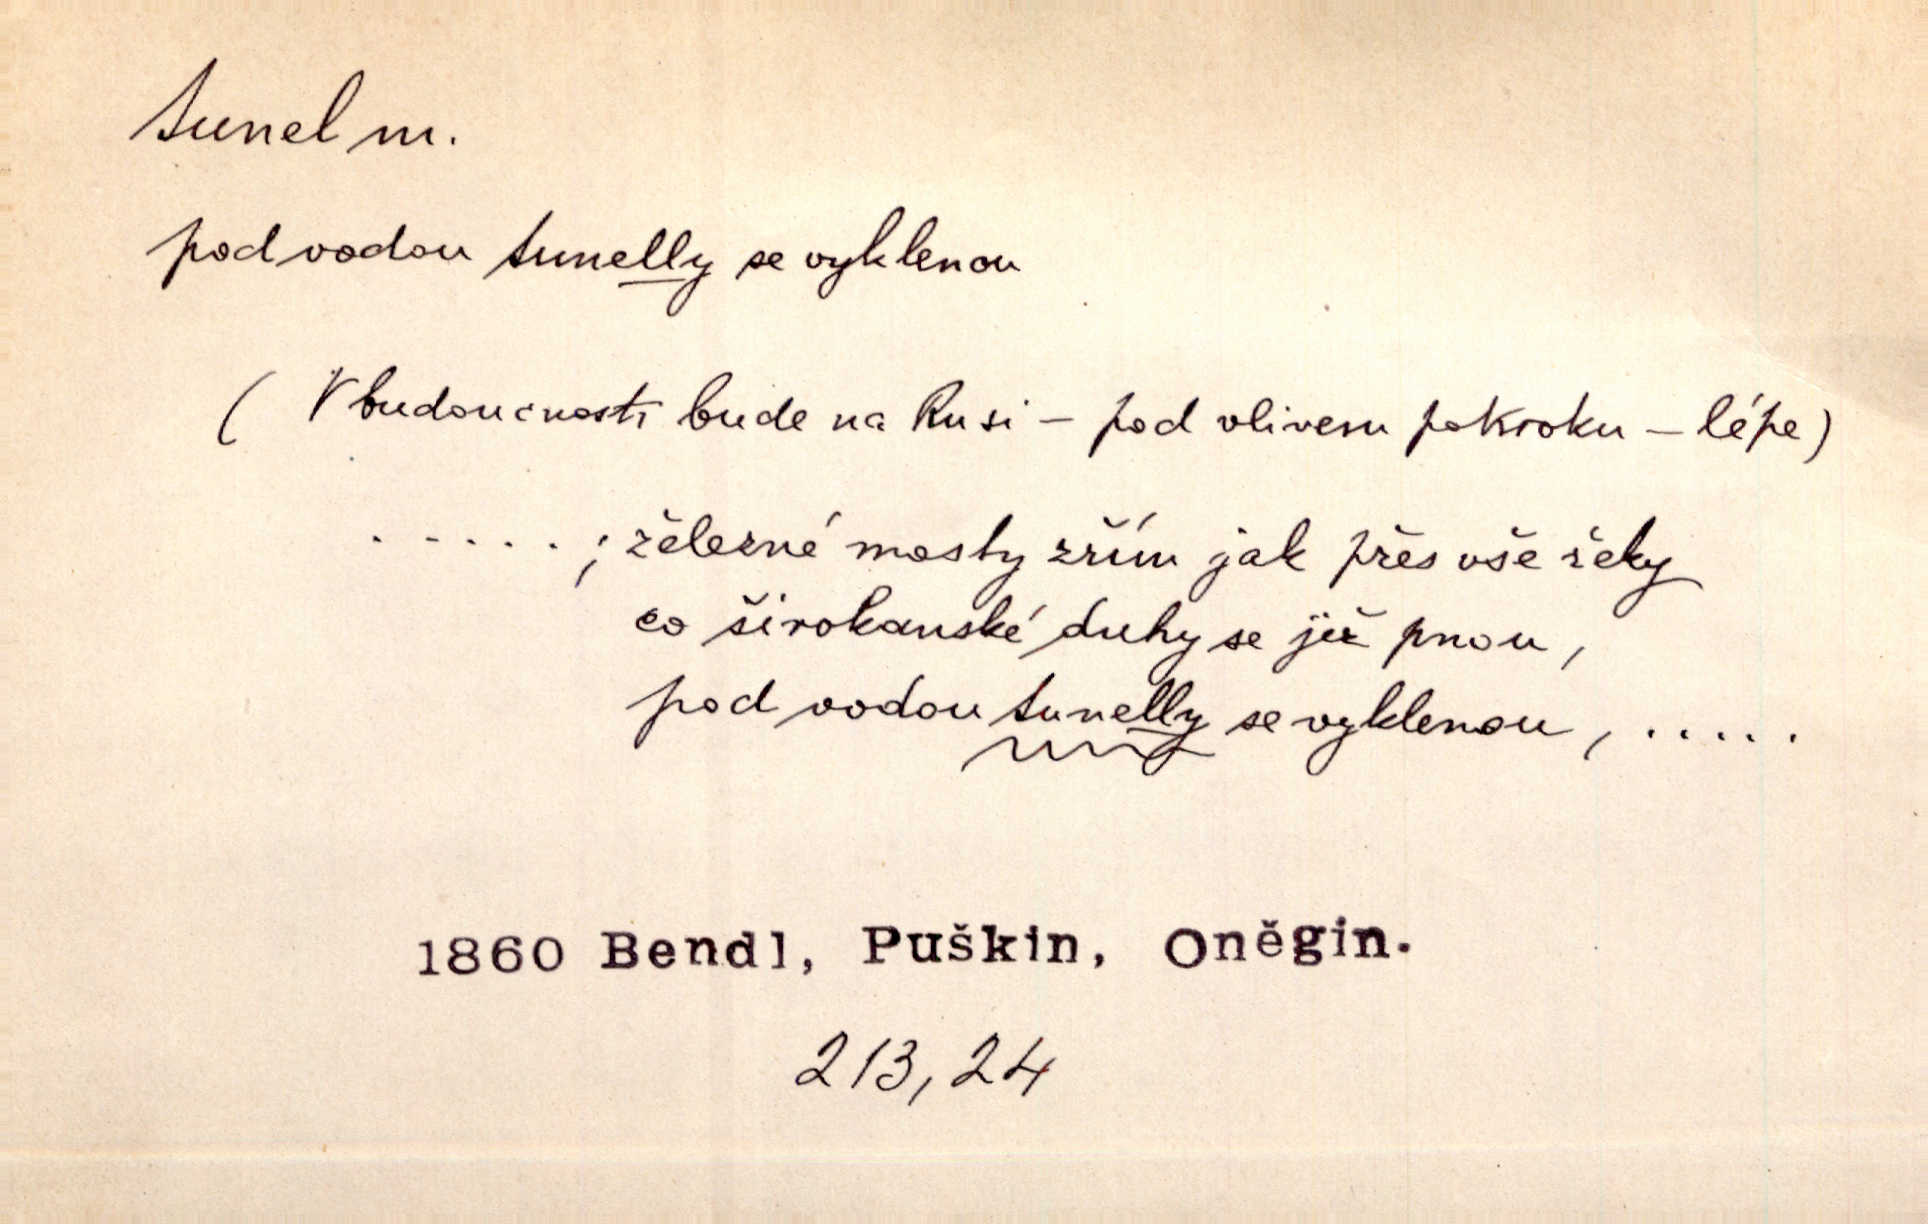 tunel m.
pod vodou tunelly se vyklenou
( V budoucnosti bude na Rusi – pod vlivem pokroku – lépe)
. . . . . ; želežné mosty zřím jak přes vše řeky
co širokanské duhy se již pnou,
pod vodou tunelly se vyklenou, . . . . .
1860 Bendl, Puškin, Oněgin.
213,24